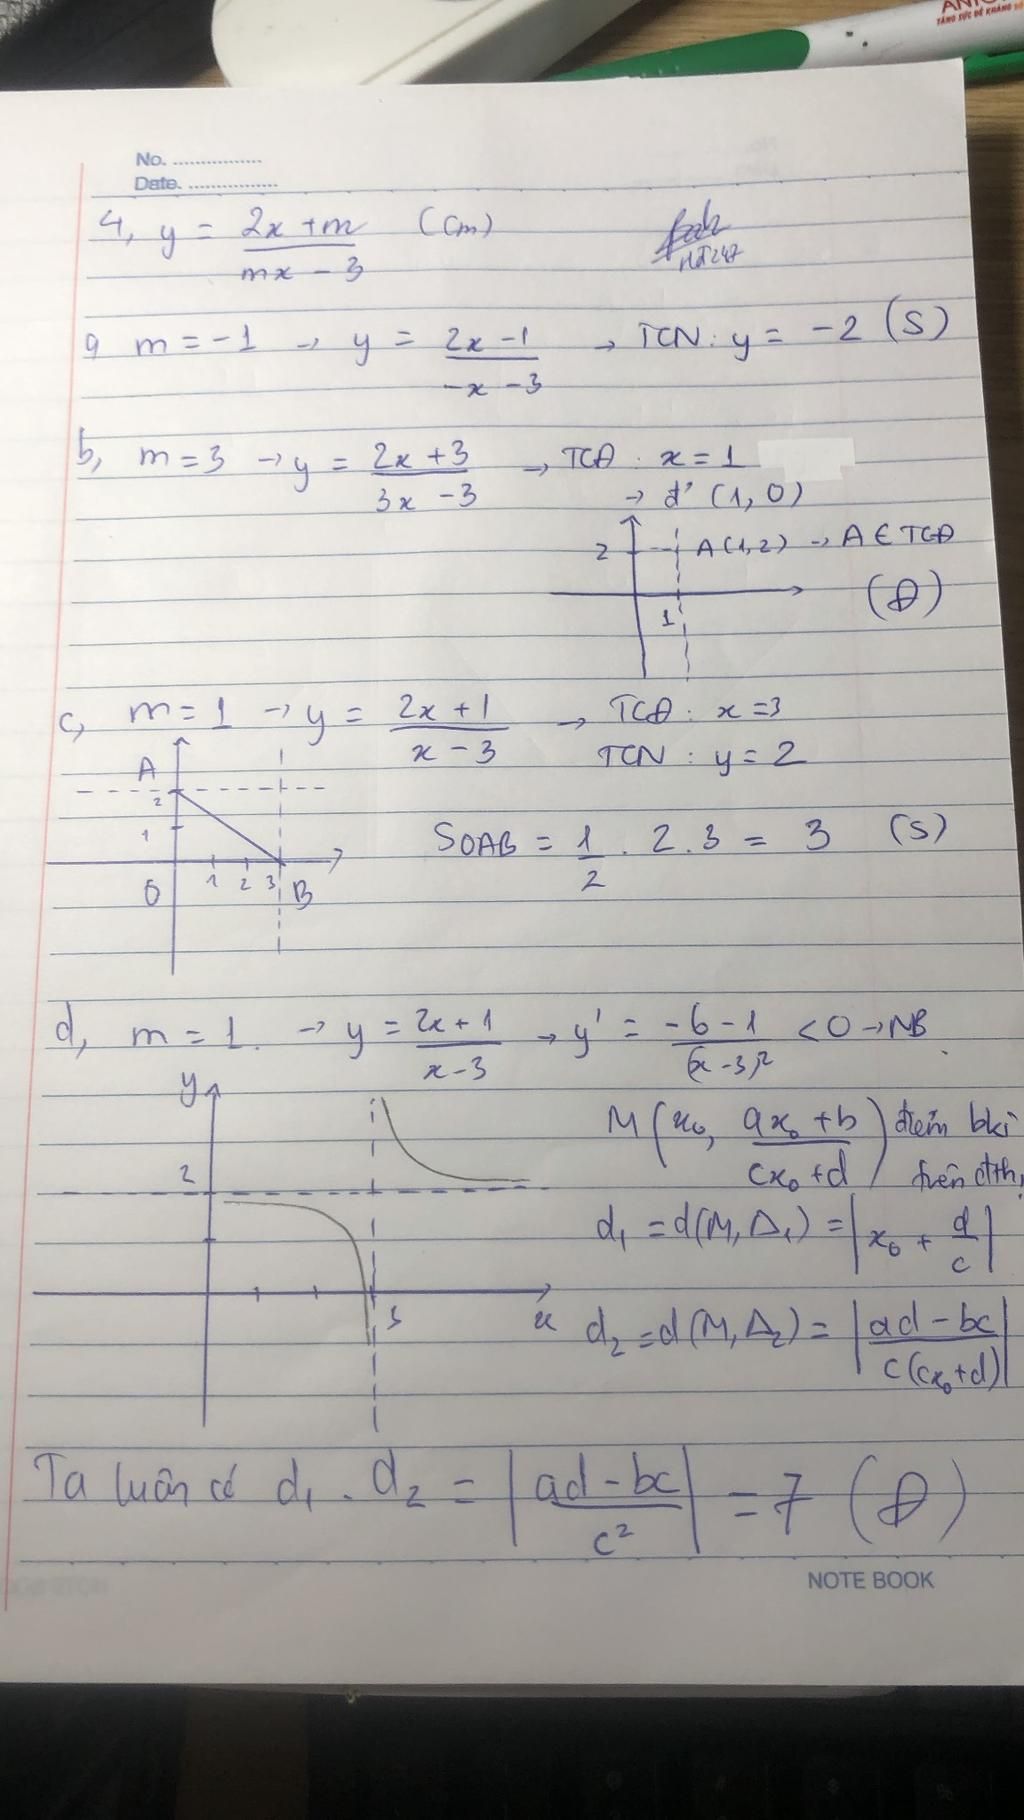 ANTI
TĂNG SỨC ĐỀ KHÁNG
No. ................
Date. ................
4, y = (2x + m)/(mx - 3) (Cm)
HT247
a, m = -1 → y = (2x - 1)/(-x - 3) → TCN: y = -2 (S)
b, m = 3 → y = (2x + 3)/(3x - 3) → TCĐ: x = 1
→ đ' (1, 0)
2 A(1,2) → A ∈ TCĐ
1 (Đ)
c, m = 1 → y = (2x + 1)/(x - 3) → TCĐ: x = 3
TCN: y = 2
A
2
1
O 1 2 3 B
SOAB = 1/2 . 2 . 3 = 3 (S)
d, m = 1. → y = (2x + 1)/(x - 3) → y' = (-6 - 1)/(x - 3)² < 0 → NB
y
2
3 x
M(x₀, (ax₀ + b)/(cx₀ + d)) điểm bkì
trên đths
d₁ = d(M, Δ₁) = |x₀ + d/c|
d₂ = d(M, Δ₂) = |(ad - bc)/(c(cx₀ + d))|
Ta luôn có d₁ . d₂ = |(ad - bc)/c²| = 7 (Đ)
NOTE BOOK